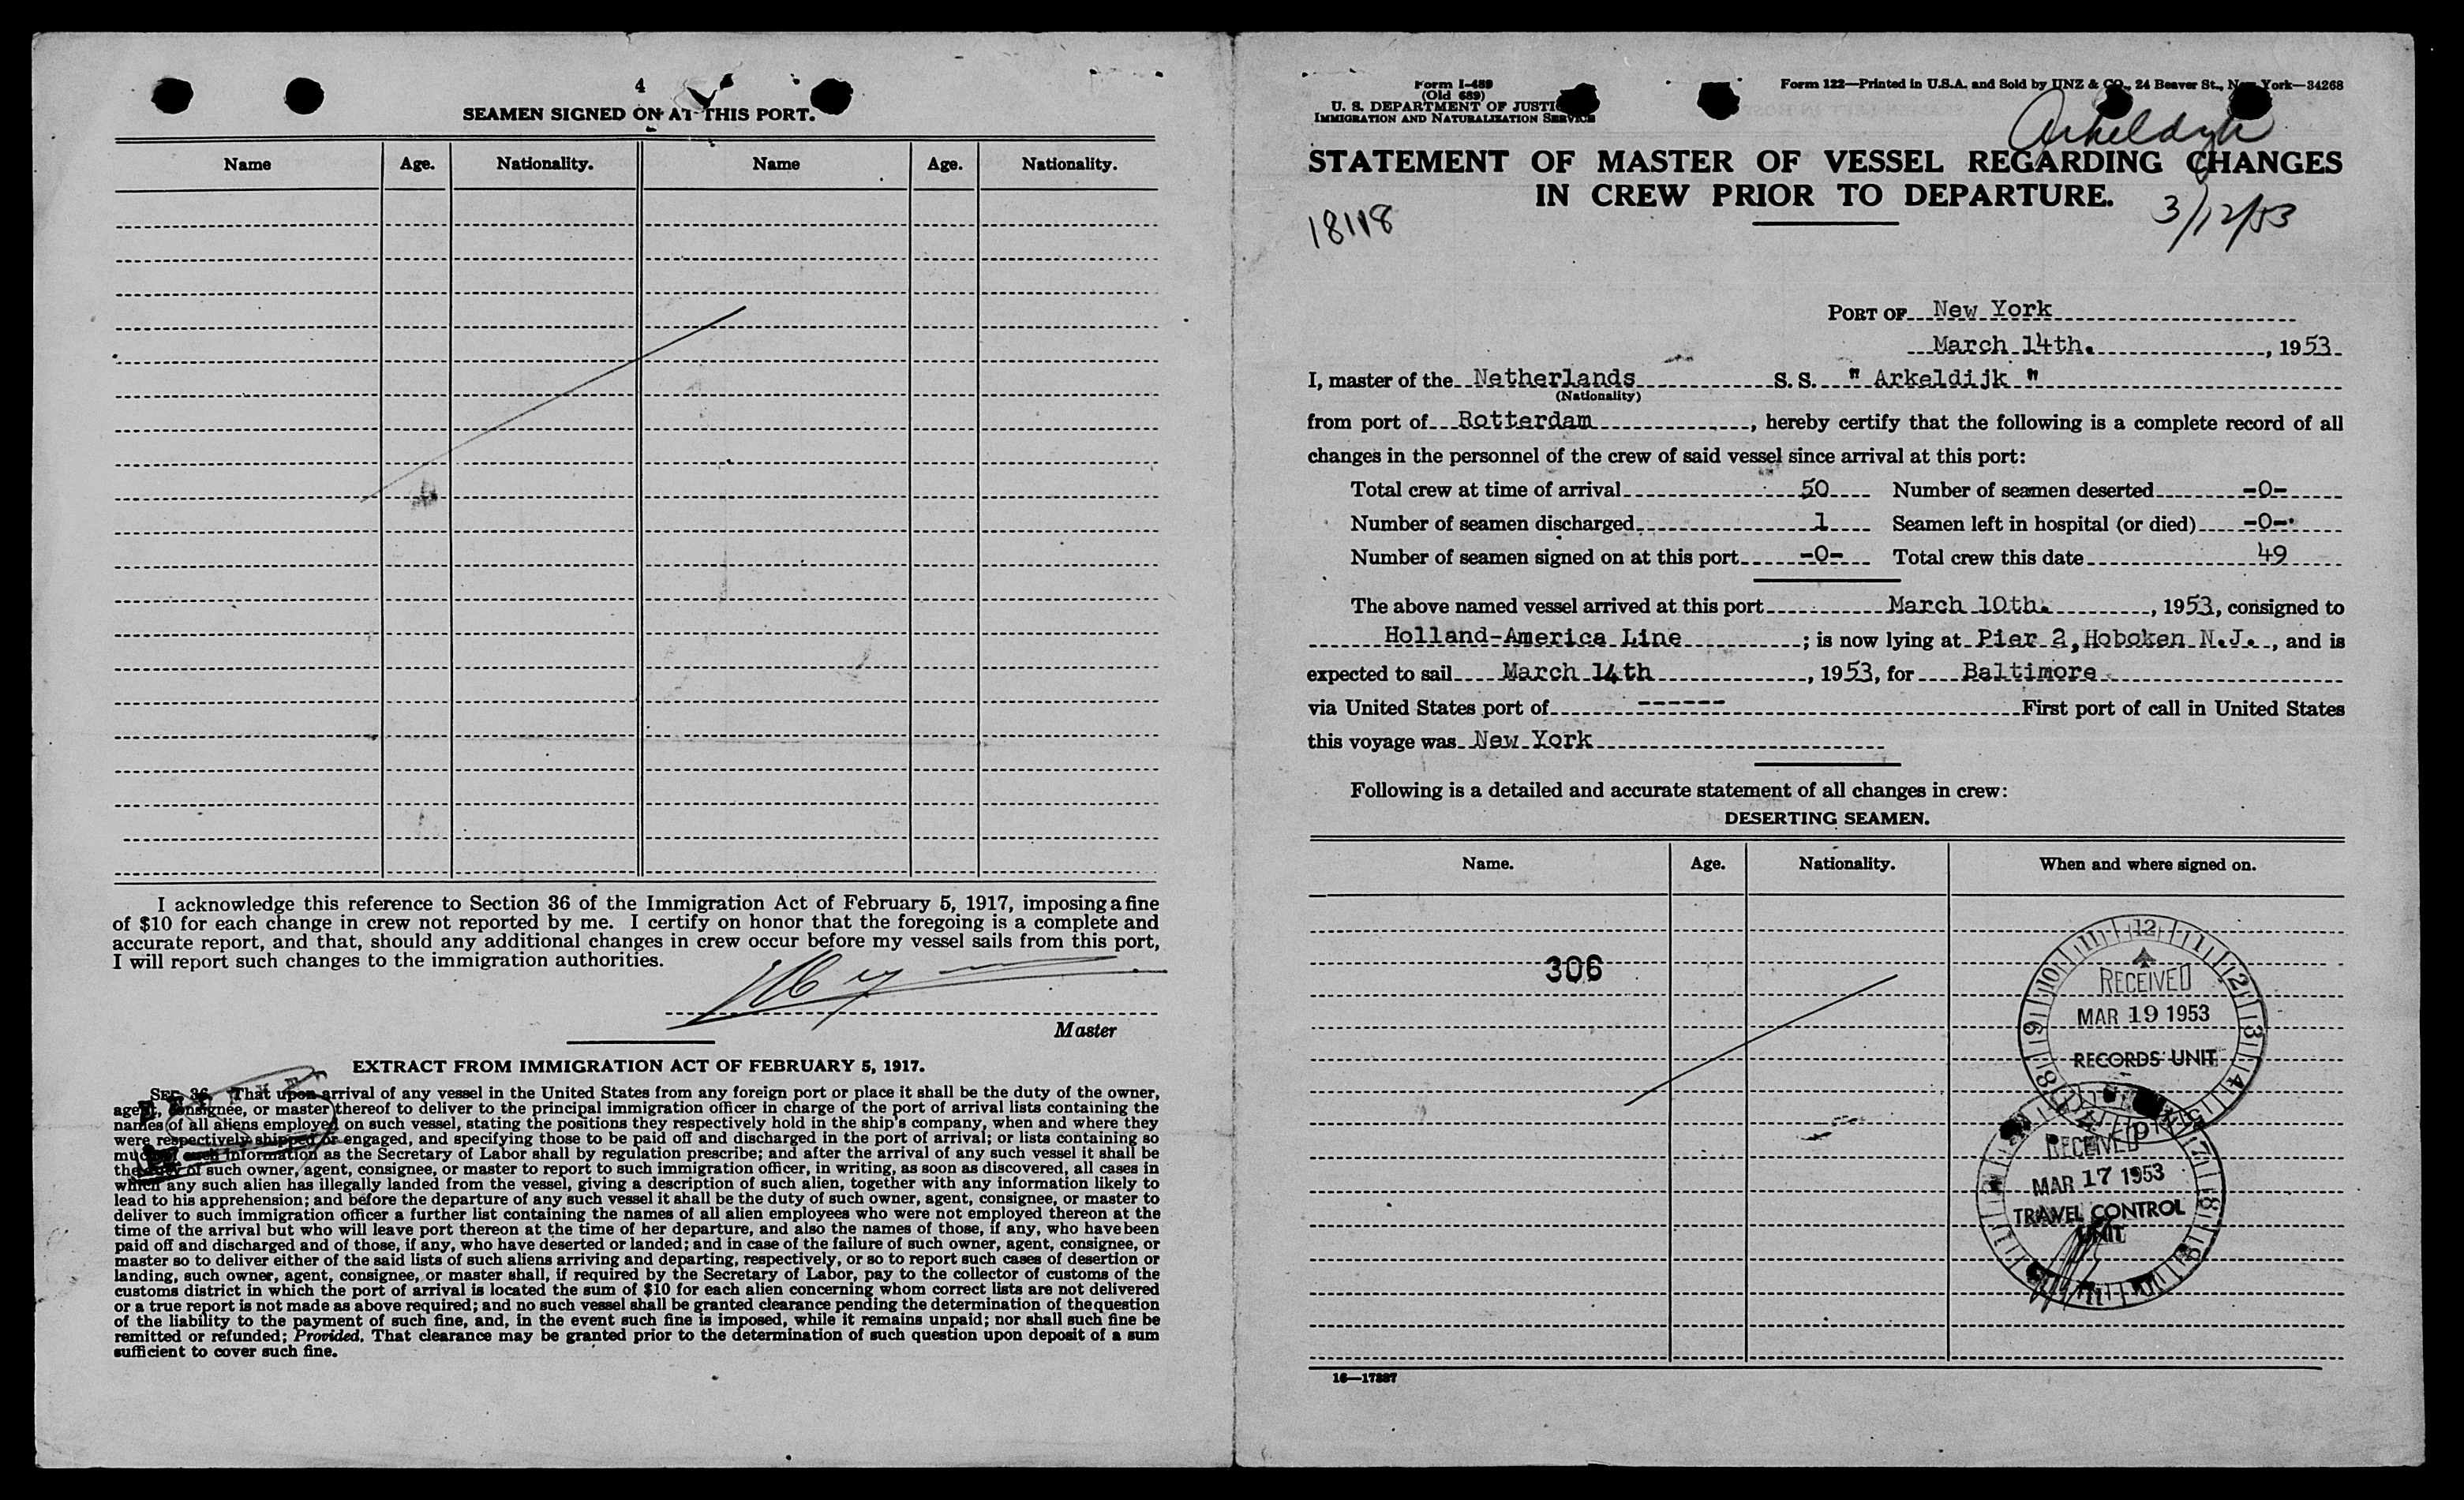 4
SEAMEN SIGNED ON AT THIS PORT.
Name Age. Nationality. Name Age. Nationality.
I acknowledge this reference to Section 36 of the Immigration Act of February 5, 1917, imposing a fine
of $10 for each change in crew not reported by me. I certify on honor that the foregoing is a complete and
accurate report, and that, should any additional changes in crew occur before my vessel sails from this port,
I will report such changes to the immigration authorities.
Master
EXTRACT FROM IMMIGRATION ACT OF FEBRUARY 5, 1917.
SEC. 36. That upon arrival of any vessel in the United States from any foreign port or place it shall be the duty of the owner,
agent, consignee, or master thereof to deliver to the principal immigration officer in charge of the port of arrival lists containing the
names of all aliens employed on such vessel, stating the positions they respectively hold in the ship's company, when and where they
were respectively shipped or engaged, and specifying those to be paid off and discharged in the port of arrival; or lists containing so
much of such information as the Secretary of Labor shall by regulation prescribe; and after the arrival of any such vessel it shall be
the duty of such owner, agent, consignee, or master to report to such immigration officer, in writing, as soon as discovered, all cases in
which any such alien has illegally landed from the vessel, giving a description of such alien, together with any information likely to
lead to his apprehension; and before the departure of any such vessel it shall be the duty of such owner, agent, consignee, or master to
deliver to such immigration officer a further list containing the names of all alien employees who were not employed thereon at the
time of the arrival but who will leave port thereon at the time of her departure, and also the names of those, if any, who have been
paid off and discharged and of those, if any, who have deserted or landed; and in case of the failure of such owner, agent, consignee, or
master so to deliver either of the said lists of such aliens arriving and departing, respectively, or so to report such cases of desertion or
landing, such owner, agent, consignee, or master shall, if required by the Secretary of Labor, pay to the collector of customs of the
customs district in which the port of arrival is located the sum of $10 for each alien concerning whom correct lists are not delivered
or a true report is not made as above required; and no such vessel shall be granted clearance pending the determination of the question
of the liability to the payment of such fine, and, in the event such fine is imposed, while it remains unpaid; nor shall such fine be
remitted or refunded; Provided, That clearance may be granted prior to the determination of such question upon deposit of a sum
sufficient to cover such fine.
Form I-489
(Old 689)
U. S. DEPARTMENT OF JUSTI
IMMIGRATION AND NATURALIZATION SERVICE
Form 122—Printed in U.S.A. and Sold by UNZ & CO., 24 Beaver St., New York—34268
Arkeldyk
STATEMENT OF MASTER OF VESSEL REGARDING CHANGES
IN CREW PRIOR TO DEPARTURE.
18118
3/12/53
PORT OF New York
March 14th. , 1953
I, master of the Netherlands S. S. " Arkeldijk "
(Nationality)
from port of Rotterdam , hereby certify that the following is a complete record of all
changes in the personnel of the crew of said vessel since arrival at this port:
Total crew at time of arrival 50 Number of seamen deserted -0-
Number of seamen discharged 1 Seamen left in hospital (or died) -0-
Number of seamen signed on at this port -0- Total crew this date 49
The above named vessel arrived at this port March 10th. , 1953, consigned to
Holland-America Line ; is now lying at Pier 2, Hoboken N.J. , and is
expected to sail March 14th , 1953, for Baltimore
via United States port of ------ First port of call in United States
this voyage was New York
Following is a detailed and accurate statement of all changes in crew:
DESERTING SEAMEN.
Name. Age. Nationality. When and where signed on.
306
RECEIVED
MAR 19 1953
RECORDS UNIT
RECEIVED
MAR 17 1953
TRAVEL CONTROL
UNIT
16—17887